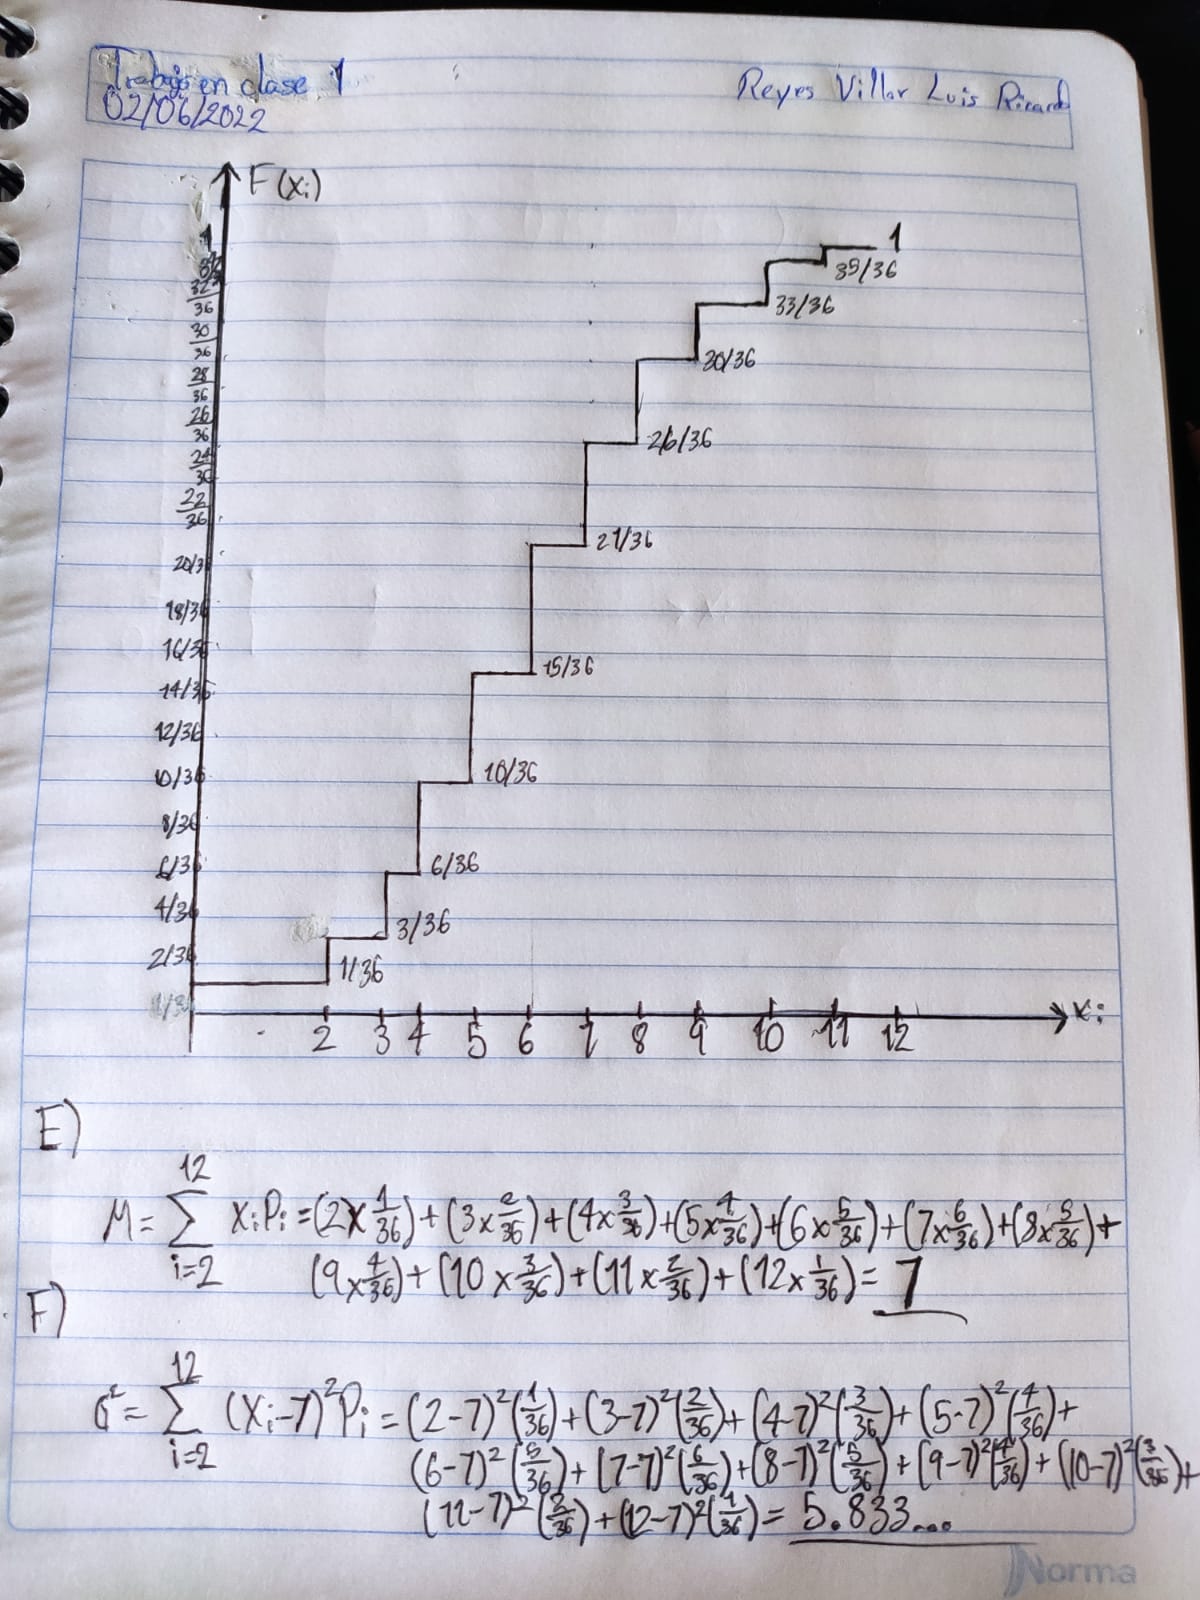 Trabajo en clase 1
02/06/2022
Reyes Villar Luis Ricardo
F(xi)
1
32/36
30/36
28/36
26/36
24/36
22/36
20/36
18/36
16/36
14/36
12/36
10/36
8/36
6/36
4/36
2/36
1/36
1
35/36
33/36
30/36
26/36
21/36
15/36
10/36
6/36
3/36
1/36
2 3 4 5 6 7 8 9 10 11 12 xi
E)
M = ∑_{i=2}^{12} xiPi = (2x1/36)+(3x2/36)+(4x3/36)+(5x4/36)+(6x5/36)+(7x6/36)+(8x5/36)+
(9x4/36)+(10x3/36)+(11x2/36)+(12x1/36)= 7
F)
σ² = ∑_{i=2}^{12} (xi-7)²Pi = (2-7)²(1/36)+(3-7)²(2/36)+(4-7)²(3/36)+(5-7)²(4/36)+
(6-7)²(5/36)+(7-7)²(6/36)+(8-7)²(5/36)+(9-7)²(4/36)+(10-7)²(3/36)+
(11-7)²(2/36)+(12-7)²(1/36)= 5.833...
Norma